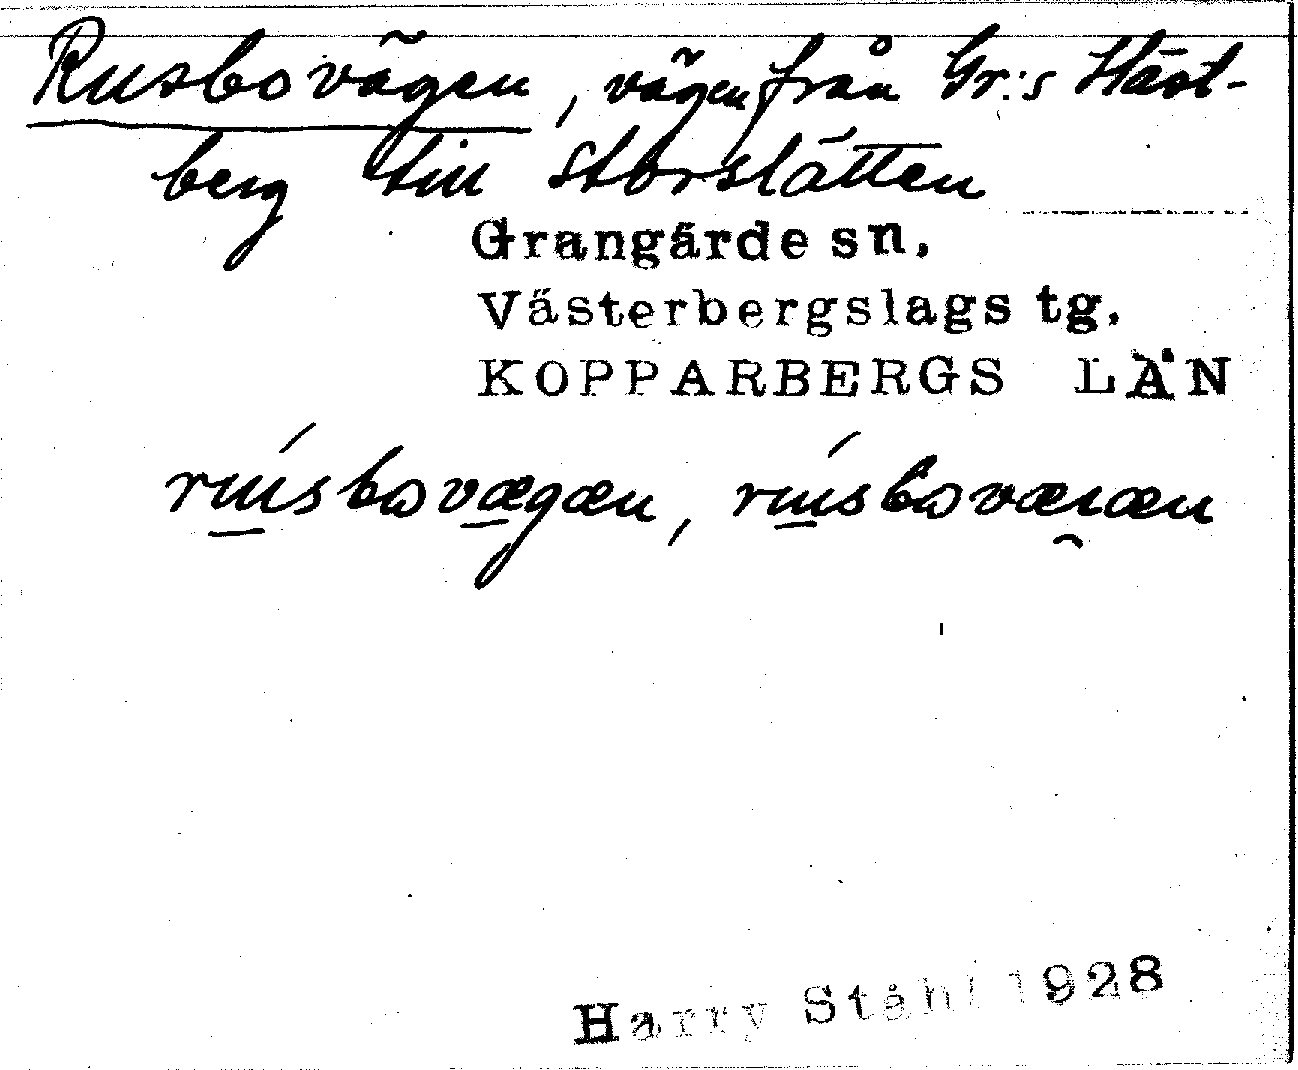 Rusbovägen, vägen från Gr:s Häst-
berg till Storslätten
Grangärde sn.
Västerbergslags tg.
KOPPARBERGS LÄN
Harry Ståhl 1928